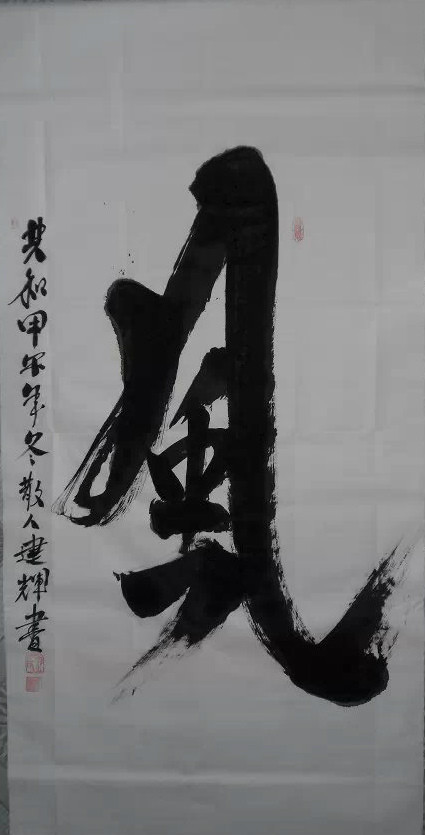 風
共和甲午年冬散人建輝書